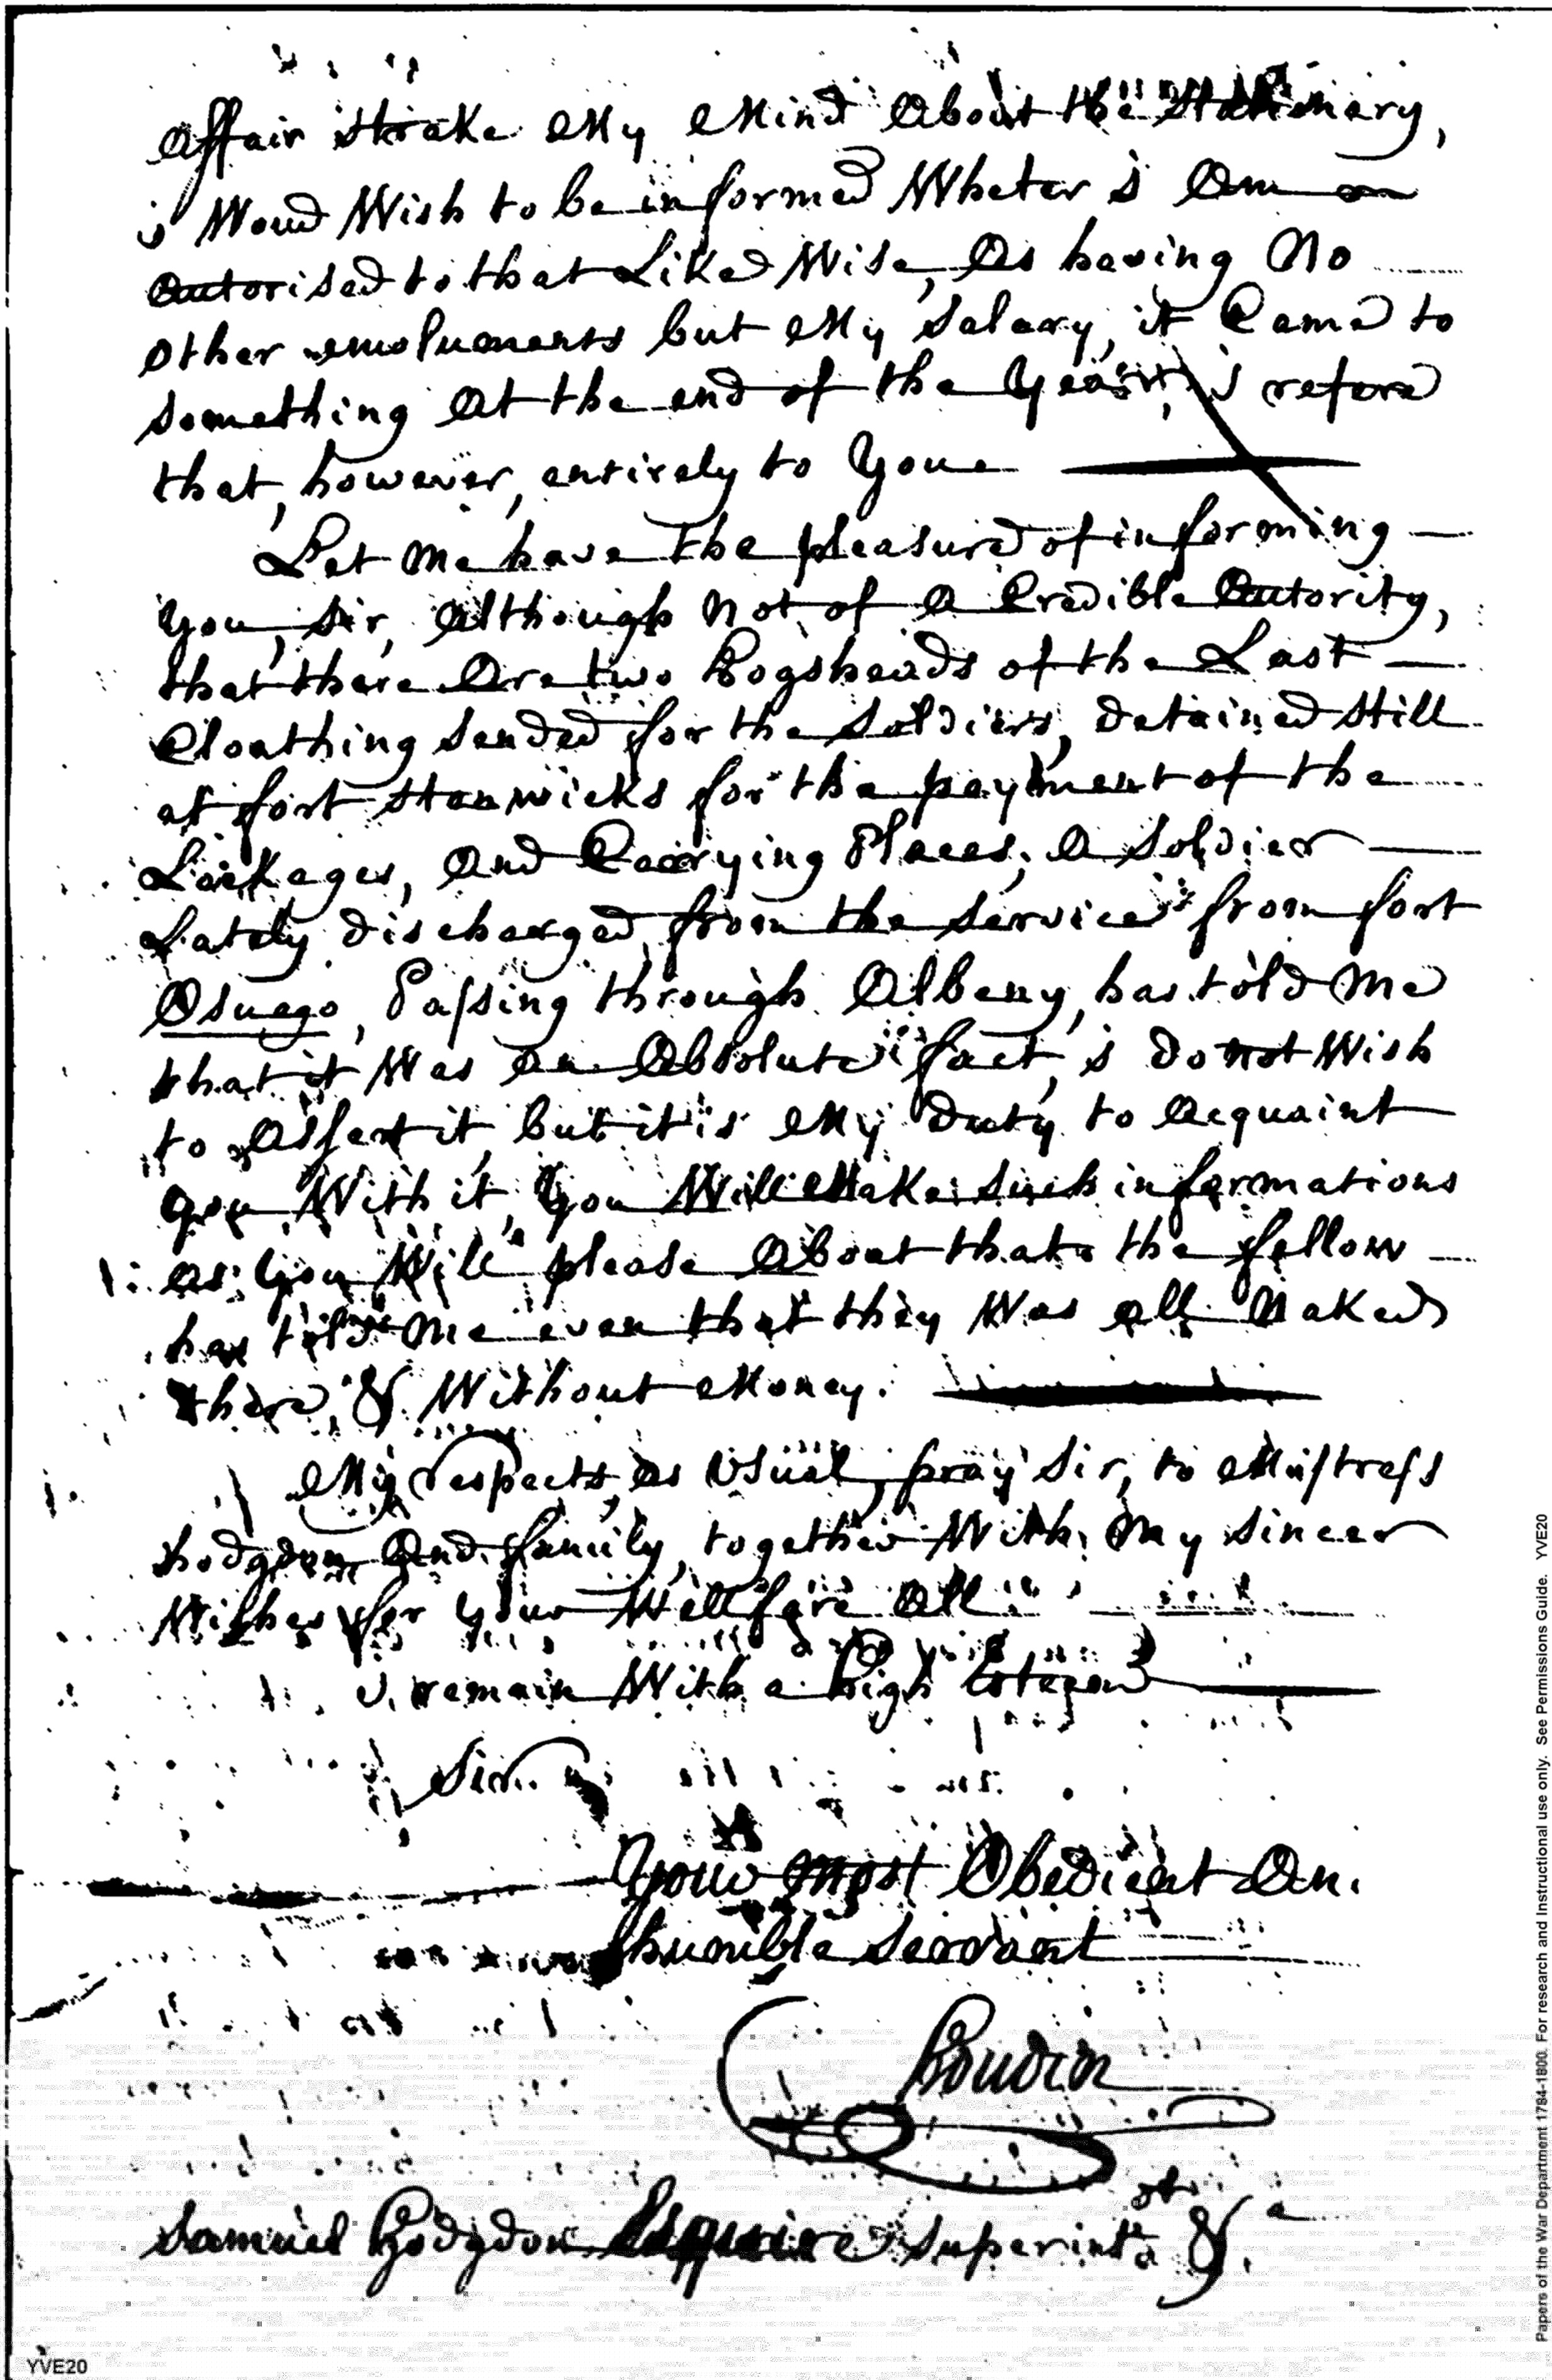 Affair strake My Mind About the Stationary,
i Woud Wish to be informed Wheter i Am
Autorised to that Liked Wise, As having No
other emoluments but My Salary, it Came to
something At the end of the Year, i refere
that, however, entirely to Youe
Let Me have the pleasure of informing
You, Sir, Although Not of A Credible Autority,
that there Are two Hogsheads of the Last
Cloathing sended for the Soldiers, detained still
at fort Stanwicks for the payment of the
Lockages, And Carrying Places; A Soldier
Lately discharged from the service from fort
Osuego, Passing through Albany, has told Me
that it Was An Absolute fact, i do not Wish
to Assert it but it is My Duty to Acquaint
you With it, You Will Make such informations
as You Will please About that the fellow
has told Me even that they Was all Naked
there, & Without Money.
My respects, as Usual, pray Sir, to Mistress
hodgdon And family, together With My sincer
Wishes for your Wellfare All
I remain With a high Esteem
Sir
Your Most Obedient An.
humble Servant
Boudin
Samuel Hodgdon Esquire Superint &.a
Papers of the War Department 1784-1800. For research and instructional use only. See Permissions Guide. YVE20
YVE20